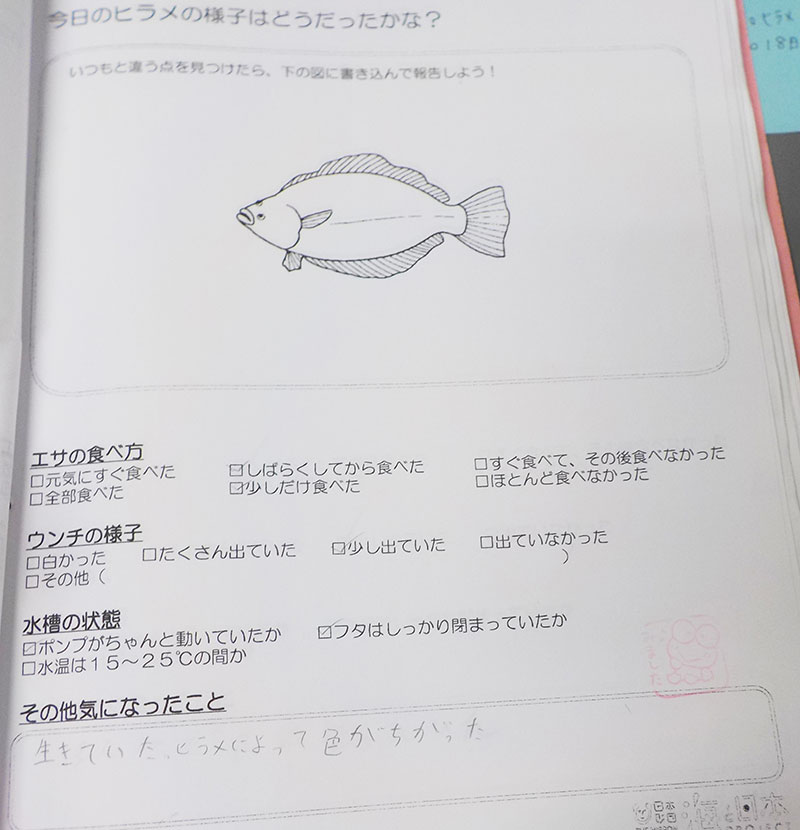 今日のヒラメの様子はどうだったかな？
いつもと違う点を見つけたら、下の図に書き込んで報告しよう！
エサの食べ方
□元気にすぐ食べた ☑しばらくしてから食べた □すぐ食べて、その後食べなかった
□全部食べた ☑少しだけ食べた □ほとんど食べなかった
ウンチの様子
□白かった □たくさん出ていた ☑少し出ていた □出ていなかった
□その他（ ）
水槽の状態
☑ポンプがちゃんと動いていたか ☑フタはしっかり閉まっていたか
□水温は１５～２５℃の間か
その他気になったこと
生きていた。ヒラメによって色がちがった
ヒラメ
18日
海と日本